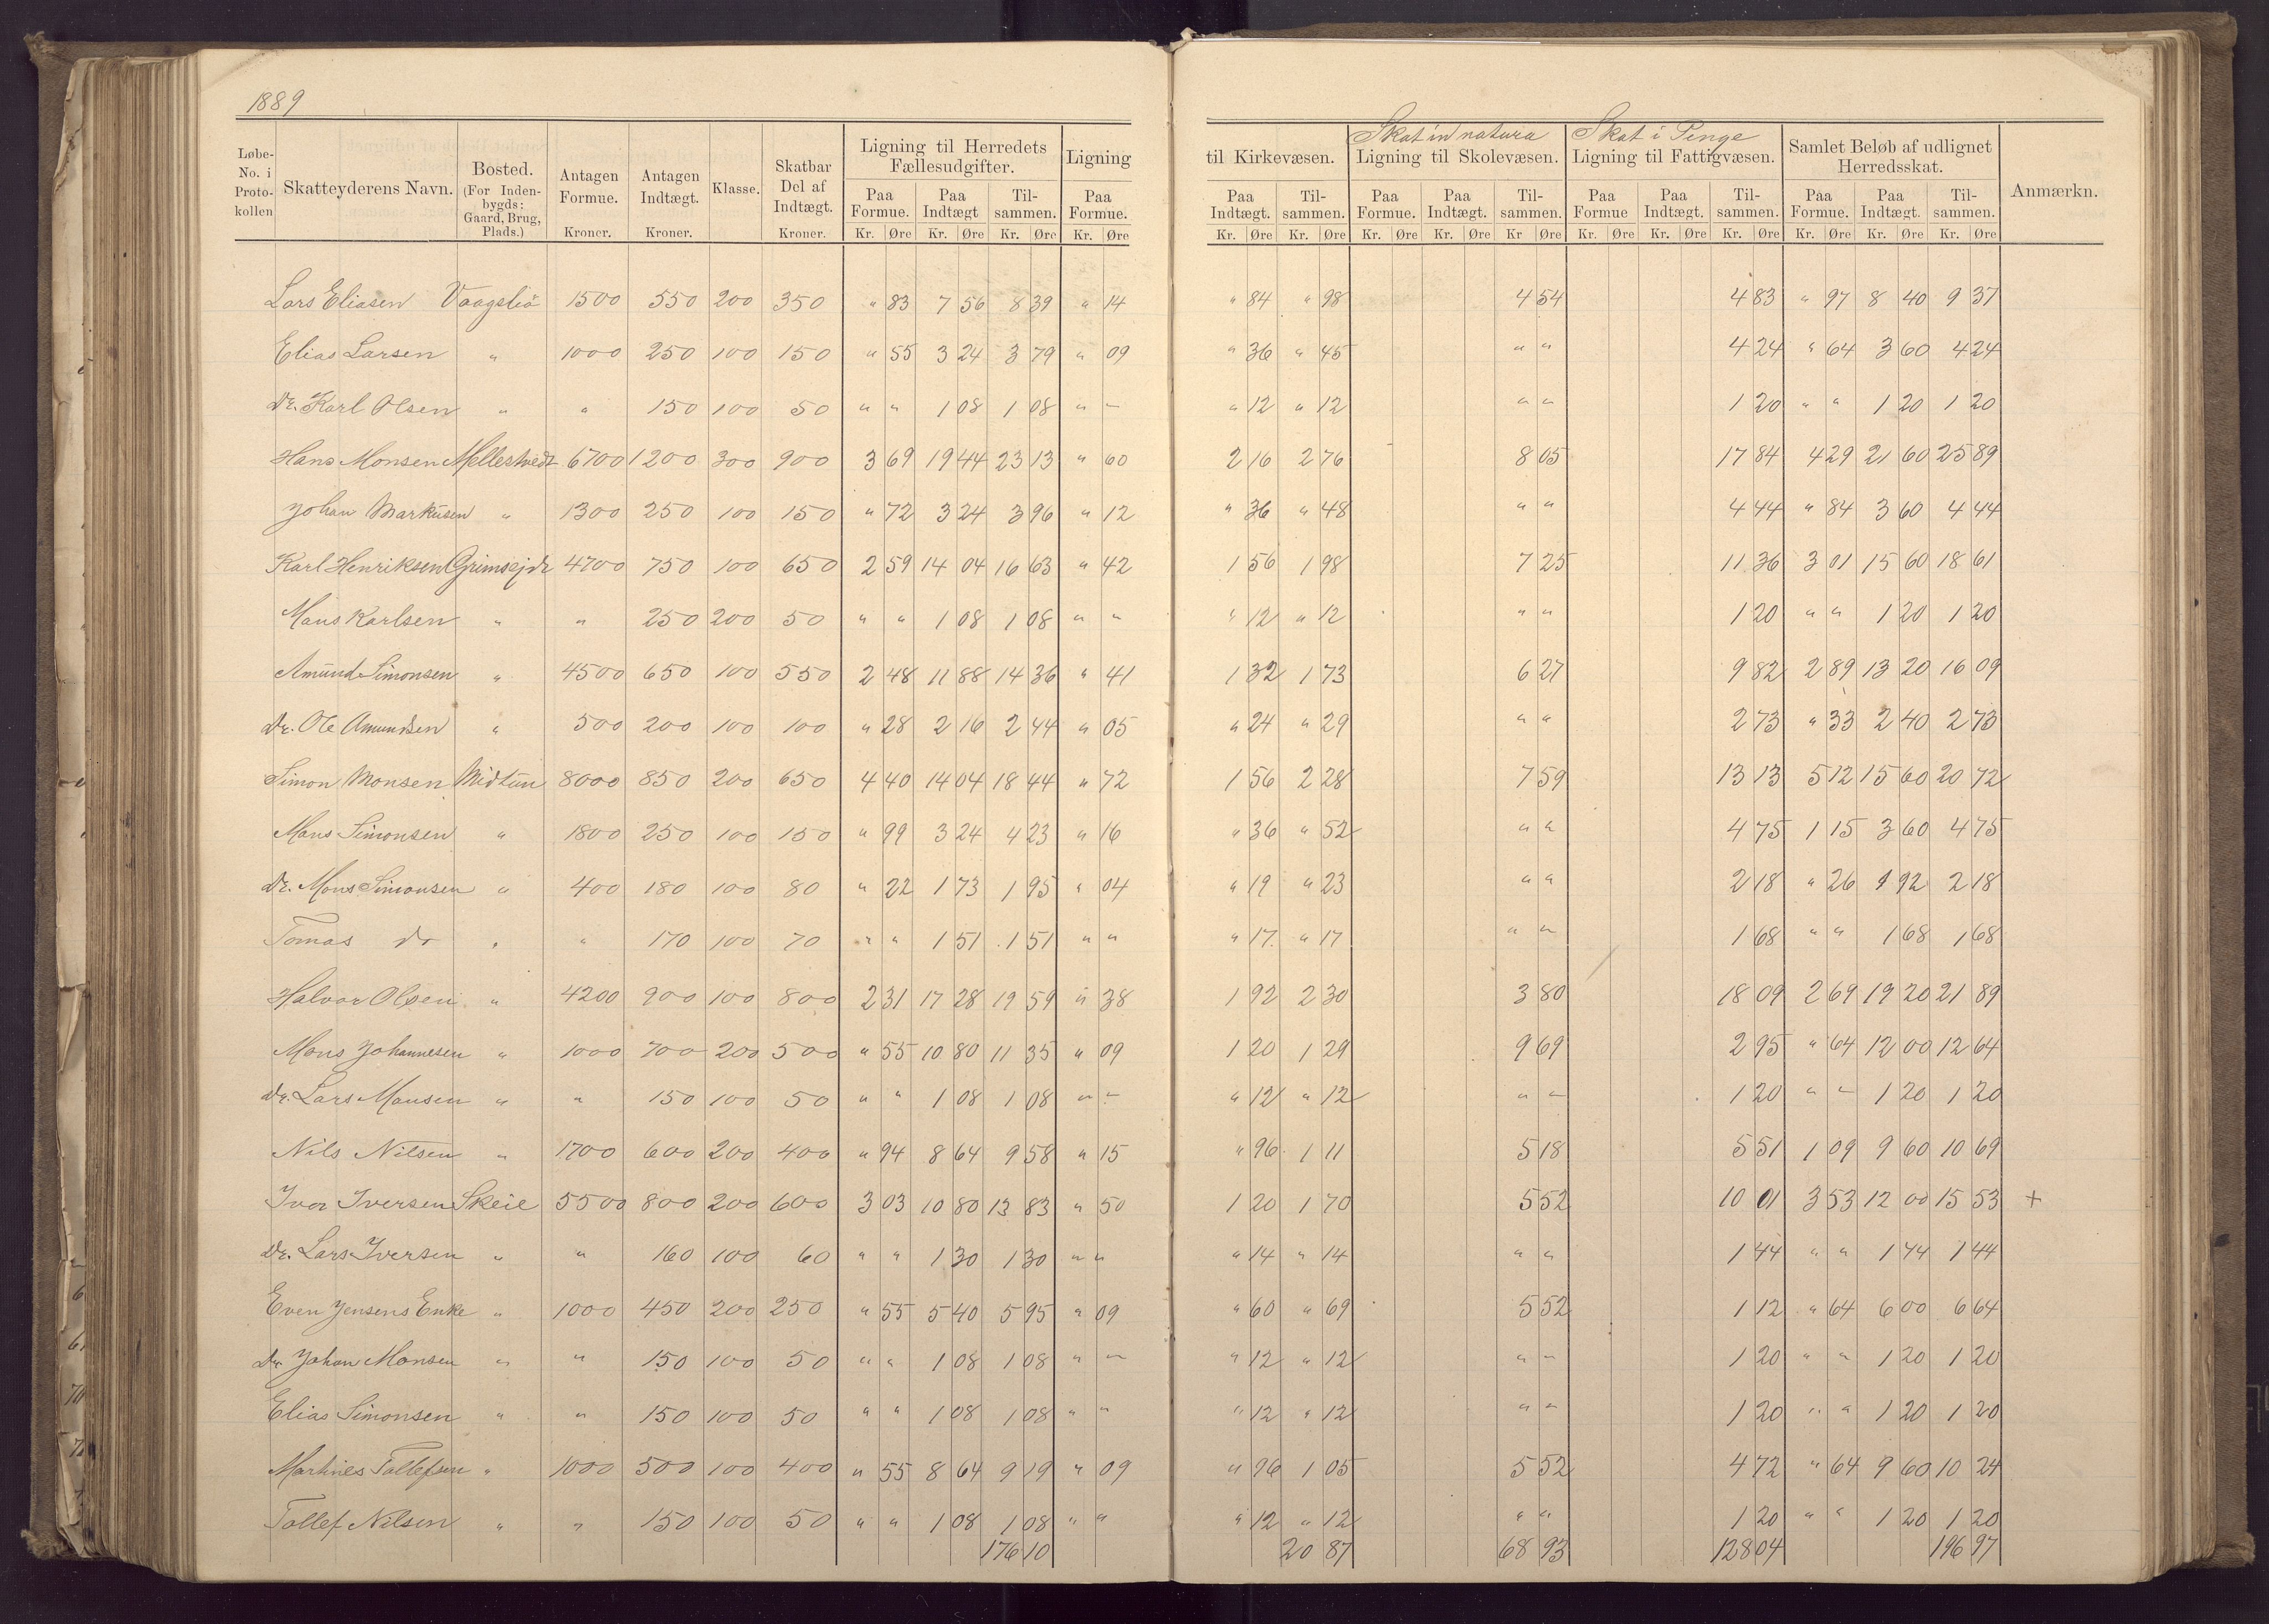 1889
Skat in natura Skat i Penge
Løbe-No. i Protokollen Skatteyderens Navn. Bosted. (For Indenbygds: Gaard, Brug, Plads.) Antagen Formue. Kroner. Antagen Indtægt. Kroner. Klasse. Skatbar Del af Indtægt. Kroner. Ligning til Herredets Fællesudgifter. Paa Formue. Paa Indtægt Tilsammen. Ligning Paa Formue. til Kirkevæsen. Paa Indtægt. Tilsammen. Ligning til Skolevæsen. Paa Formue. Paa Indtægt. Tilsammen. Ligning til Fattigvæsen. Paa Formue Paa Indtægt. Tilsammen. Samlet Beløb af udlignet Herredsskat. Paa Formue. Paa Indtægt. Tilsammen. Anmærkn.
Kr. Øre Kr. Øre Kr. Øre Kr. Øre Kr. Øre Kr. Øre Kr. Øre Kr. Øre Kr Øre Kr. Øre Kr. Øre Kr. Øre Kr. Øre Kr. Øre Kr. Øre
Lars Eliasen Vaagsliö 1500 550 200 350 " 83 7 56 8 39 " 14 " 84 " 98 4 54 4 83 " 97 8 40 9 37
Elias Larsen " 1000 250 100 150 " 55 3 24 3 79 " 09 " 36 " 45 " " 4 24 " 64 3 60 4 24
Dr. Karl Olsen " " 150 100 50 " " 1 08 1 08 " " " 12 " 12 " " 1 20 " " 1 20 1 20
Hans Monsen Mellestvedt 6700 1200 300 900 3 69 19 44 23 13 " 60 2 16 2 76 8 05 17 84 4 29 21 60 25 89
Johan Markusen " 1300 250 100 150 " 72 3 24 3 96 " 12 " 36 " 48 " " 4 44 " 84 3 60 4 44
Karl Henriksen Grimsejde 4700 750 100 650 2 59 14 04 16 63 " 42 1 56 1 98 7 25 11 36 3 01 15 60 18 61
Mons Karlsen " " 250 200 50 " " 1 08 1 08 " " " 12 " 12 " " 1 20 " " 1 20 1 20
Amund Simonsen " 4500 650 100 550 2 48 11 88 14 36 " 41 1 32 1 73 6 27 9 82 2 89 13 20 16 09
Dr. Ole Amundsen " 500 200 100 100 " 28 2 16 2 44 " 05 " 24 " 29 " " 2 73 " 33 2 40 2 73
Simon Monsen Midtun 8000 850 200 650 4 40 14 04 18 44 " 72 1 56 2 28 7 59 13 13 5 12 15 60 20 72
Mons Simonsen " 1800 250 100 150 " 99 3 24 4 23 " 16 " 36 " 52 " " 4 75 1 15 3 60 4 75
Dr. Mons Simonsen " 400 180 100 80 " 22 1 73 1 95 " 04 " 19 " 23 " " 2 18 " 26 1 92 2 18
Tomas do " " 170 100 70 " " 1 51 1 51 " " " 17 " 17 " " 1 68 " " 1 68 1 68
Halvor Olsen " 4200 900 100 800 2 31 17 28 19 59 " 38 1 92 2 30 3 80 18 09 2 69 19 20 21 89
Mons Johannesen " 1000 700 200 500 " 55 10 80 11 35 " 09 1 20 1 29 9 69 2 95 " 64 12 00 12 64
Dr. Lars Monsen " " 150 100 50 " " 1 08 1 08 " " " 12 " 12 " " 1 20 " " 1 20 1 20
Nils Nilsen " 1700 600 200 400 " 94 8 64 9 58 " 15 " 96 1 11 5 18 5 51 1 09 9 60 10 69
Ivar Iversen Skeie 5500 800 200 600 3 03 10 80 13 83 " 50 1 20 1 70 5 52 10 01 3 53 12 00 15 53 +
Dr. Lars Iversen " " 160 100 60 " " 1 30 1 30 " " " 14 " 14 " " 1 44 " " 1 44 1 44
Even Jensens Enke " 1000 450 200 250 " 55 5 40 5 95 " 09 " 60 " 69 5 52 1 12 " 64 6 00 6 64
Dr. Johan Monsen " " 150 100 50 " " 1 08 1 08 " " " 12 " 12 " " 1 20 " " 1 20 1 20
Elias Simonsen " " 150 100 50 " " 1 08 1 08 " " " 12 " 12 " " 1 20 " " 1 20 1 20
Martines Tollefsen " 1000 500 100 400 " 55 8 64 9 19 " 09 " 96 1 05 5 52 4 72 " 64 9 60 10 24
Tollef Nilsen " " 150 100 50 " " 1 08 1 08 " " " 12 " 12 " " 1 20 " " 1 20 1 20
176 10 20 87 68 93 128 04 196 97